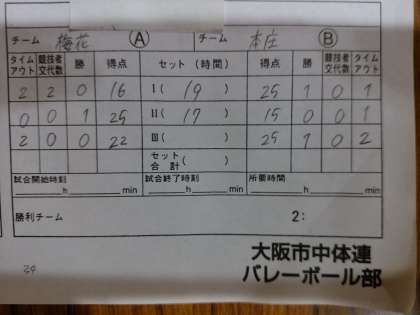 チーム 梅花 Ⓐ チーム 本庄 Ⓑ
タイムアウト 競技者交代数 勝 得点 セット (時間) 得点 勝 競技者交代数 タイムアウト
2 2 0 16 Ⅰ( 19 ) 25 1 0 1
0 0 1 25 Ⅱ( 17 ) 15 0 0 1
2 0 0 22 Ⅲ( ) 25 1 0 2
セット合計( )
試合開始時刻 試合終了時刻 所要時間
h min h min h min
勝利チーム 2:
大阪市中体連
24 バレーボール部